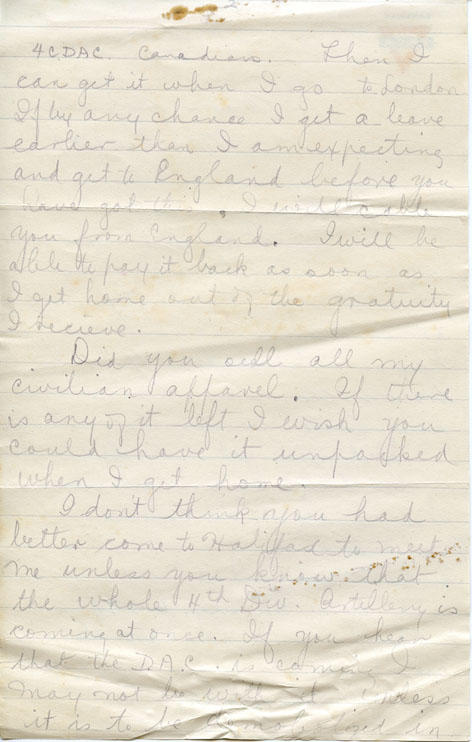 4 C.D.A.C. Canadians. Then I
can get it when I go to London
If by any chance I get a leave
earlier than I am expecting
and get to England before you
have got this, I will cable
you from England. I will be
able to pay it back as soon as
I get home out of the gratuity
I recieve.
Did you sell all my
civilian apparel. If there
is any of it left I wish you
could have it unpacked
when I get home.
I dont think you had
better come to Halifax to meet
me unless you know that
the whole 4th Div. Artillery is
coming at once. If you hear
that the D.A.C. is coming I
may not be with it unless
it is to be demobilized in